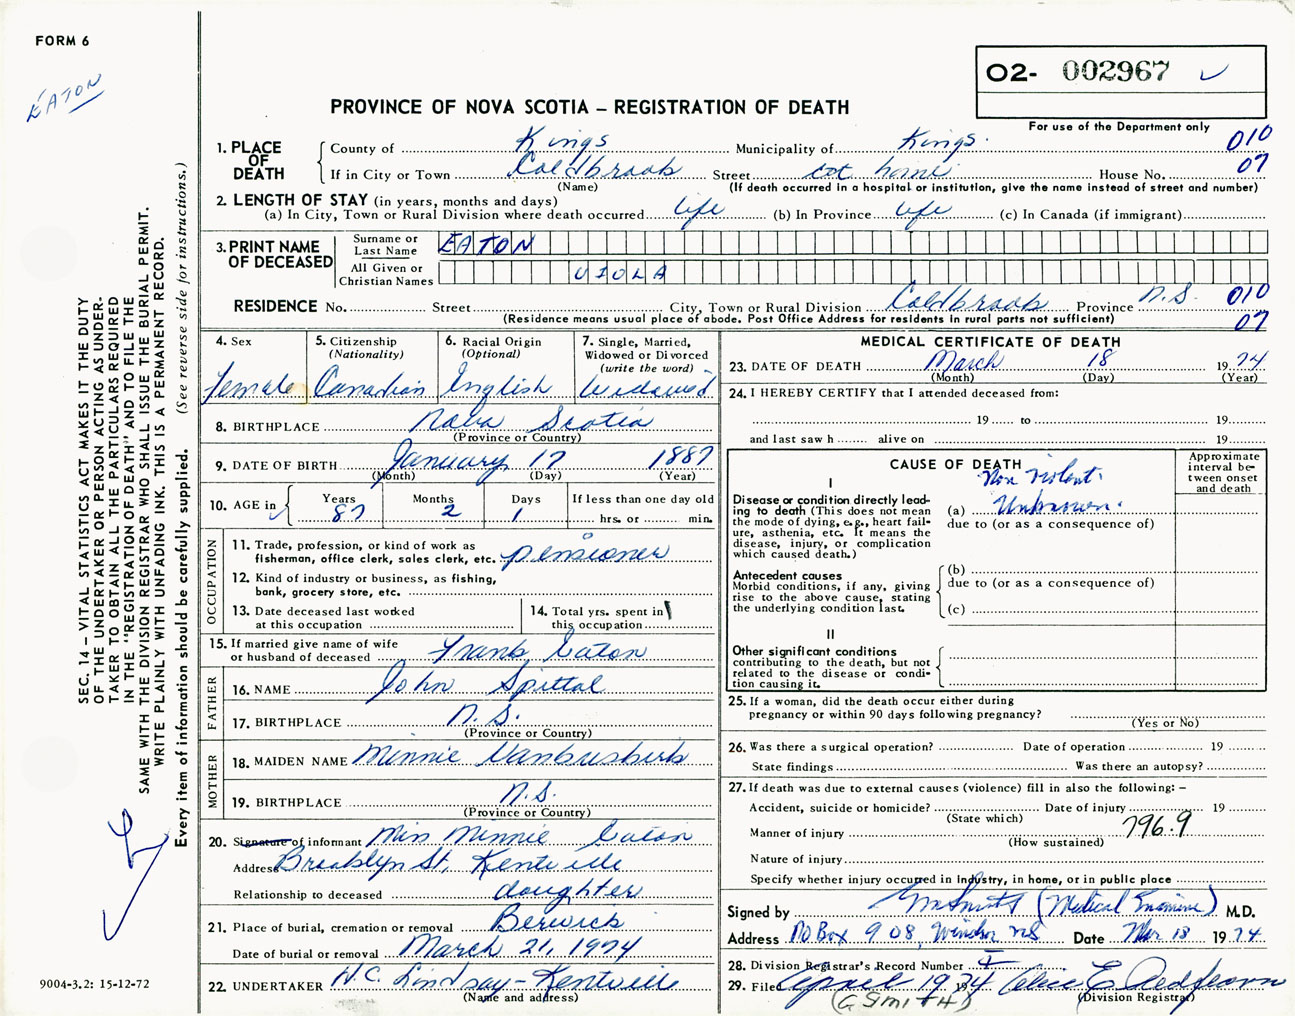 FORM 6
EATON
O2- 002967
PROVINCE OF NOVA SCOTIA – REGISTRATION OF DEATH
For use of the Department only
1. PLACE OF DEATH
County of Kings Municipality of Kings. 010
If in City or Town Coldbrook Street at home House No. 07
(Name) (If death occurred in a hospital or institution, give the name instead of street and number)
2. LENGTH OF STAY (in years, months and days)
(a) In City, Town or Rural Division where death occurred life (b) In Province life (c) In Canada (if immigrant)
3. PRINT NAME OF DECEASED
Surname or Last Name EATON
All Given or Christian Names VIOLA
RESIDENCE No. Street City, Town or Rural Division Coldbrook Province N.S. 010
(Residence means usual place of abode. Post Office Address for residents in rural parts not sufficient) 07
4. Sex
female
5. Citizenship (Nationality)
Canadian
6. Racial Origin (Optional)
English
7. Single, Married, Widowed or Divorced (write the word)
Widowed
8. BIRTHPLACE Nova Scotia
(Province or Country)
9. DATE OF BIRTH January 17 1887
(Month) (Day) (Year)
10. AGE in
Years Months Days If less than one day old
87 2 1 hrs. or min.
OCCUPATION
11. Trade, profession, or kind of work as
fisherman, office clerk, sales clerk, etc. pensioner
12. Kind of industry or business, as fishing,
bank, grocery store, etc.
13. Date deceased last worked
at this occupation
14. Total yrs. spent in
this occupation
15. If married give name of wife
or husband of deceased Frank Eaton
FATHER
16. NAME John Spittal
17. BIRTHPLACE N.S.
(Province or Country)
MOTHER
18. MAIDEN NAME Minnie Vanbuskirk
19. BIRTHPLACE N.S.
(Province or Country)
20. Signature of informant Miss Minnie Eaton
Address Brooklyn St, Kentville
Relationship to deceased daughter
21. Place of burial, cremation or removal Berwick
Date of burial or removal March 21, 1974
22. UNDERTAKER H.C. Lindsay – Kentville
(Name and address)
MEDICAL CERTIFICATE OF DEATH
23. DATE OF DEATH March 18 19 74
(Month) (Day) (Year)
24. I HEREBY CERTIFY that I attended deceased from:
19 to 19
and last saw h alive on 19
CAUSE OF DEATH
Approximate interval between onset and death
Non Violent.
I
Disease or condition directly lead-
ing to death (This does not mean
the mode of dying, e.g., heart fail-
ure, asthenia, etc. It means the
disease, injury, or complication
which caused death.)
(a) Unknown.
due to (or as a consequence of)
Antecedent causes
Morbid conditions, if any, giving
rise to the above cause, stating
the underlying condition last.
(b)
due to (or as a consequence of)
(c)
II
Other significant conditions
contributing to the death, but not
related to the disease or condi-
tion causing it.
25. If a woman, did the death occur either during
pregnancy or within 90 days following pregnancy?
(Yes or No)
26. Was there a surgical operation? Date of operation 19
State findings Was there an autopsy?
27. If death was due to external causes (violence) fill in also the following: –
Accident, suicide or homicide? Date of injury 19
(State which)
Manner of injury 796.9
(How sustained)
Nature of injury
Specify whether injury occurred in industry, in home, or in public place
Signed by (Medical Examiner) M.D.
Address PO Box 908, Windsor NS Date Mar 18 19 74
28. Division Registrar's Record Number
29. Filed April 1974 Alice E
(G Smith) (Division Registrar)
SEC. 14 – VITAL STATISTICS ACT MAKES IT THE DUTY
OF THE UNDERTAKER OR PERSON ACTING AS UNDER-
TAKER TO OBTAIN ALL THE PARTICULARS REQUIRED
IN THE "REGISTRATION OF DEATH" AND TO FILE THE
SAME WITH THE DIVISION REGISTRAR WHO SHALL ISSUE THE BURIAL PERMIT.
WRITE PLAINLY WITH UNFADING INK. THIS IS A PERMANENT RECORD.
Every item of information should be carefully supplied. (See reverse side for instructions.)
9004-3.2: 15-12-72